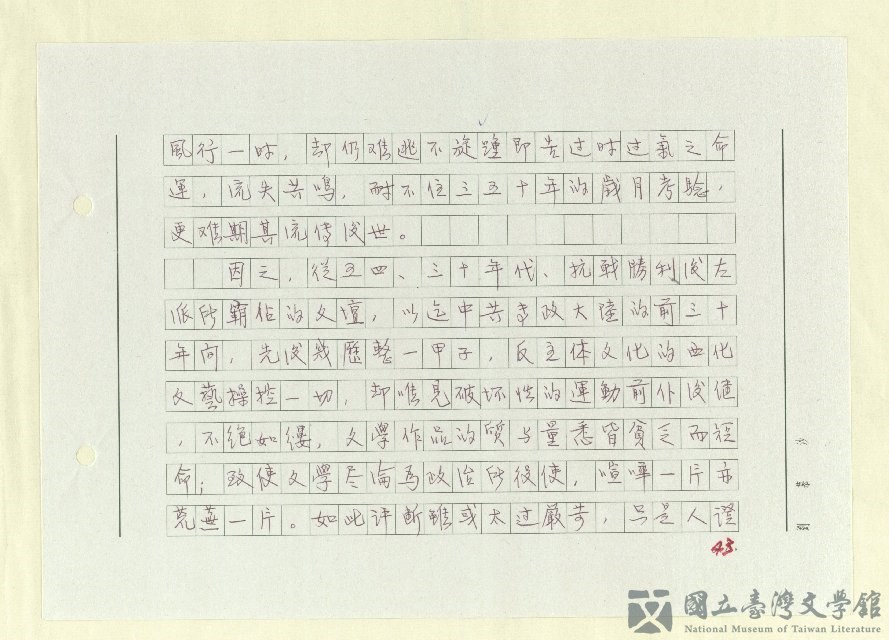 風行一时，却仍难逃不旋踵即告过时过氣之命
運，流失共鳴，耐不住三五十年的歲月考驗，
更难期其流傳後世。
因之，從五四、三十年代、抗戰勝利後左
派所霸佔的文壇，以迄中共专政大陸的前三十
年间，先後幾歷整一甲子，反主体文化的西化
文藝操控一切，却唯見破坏性的運動前仆後继
，不绝如縷，文學作品的質与量悉皆貧乏而短
命；致使文學尽淪為政治所役使，喧嘩一片亦
荒蕪一片。如此评断雖或太过嚴苛，只是人證
43.
國立臺灣文學館
National Museum of Taiwan Literature